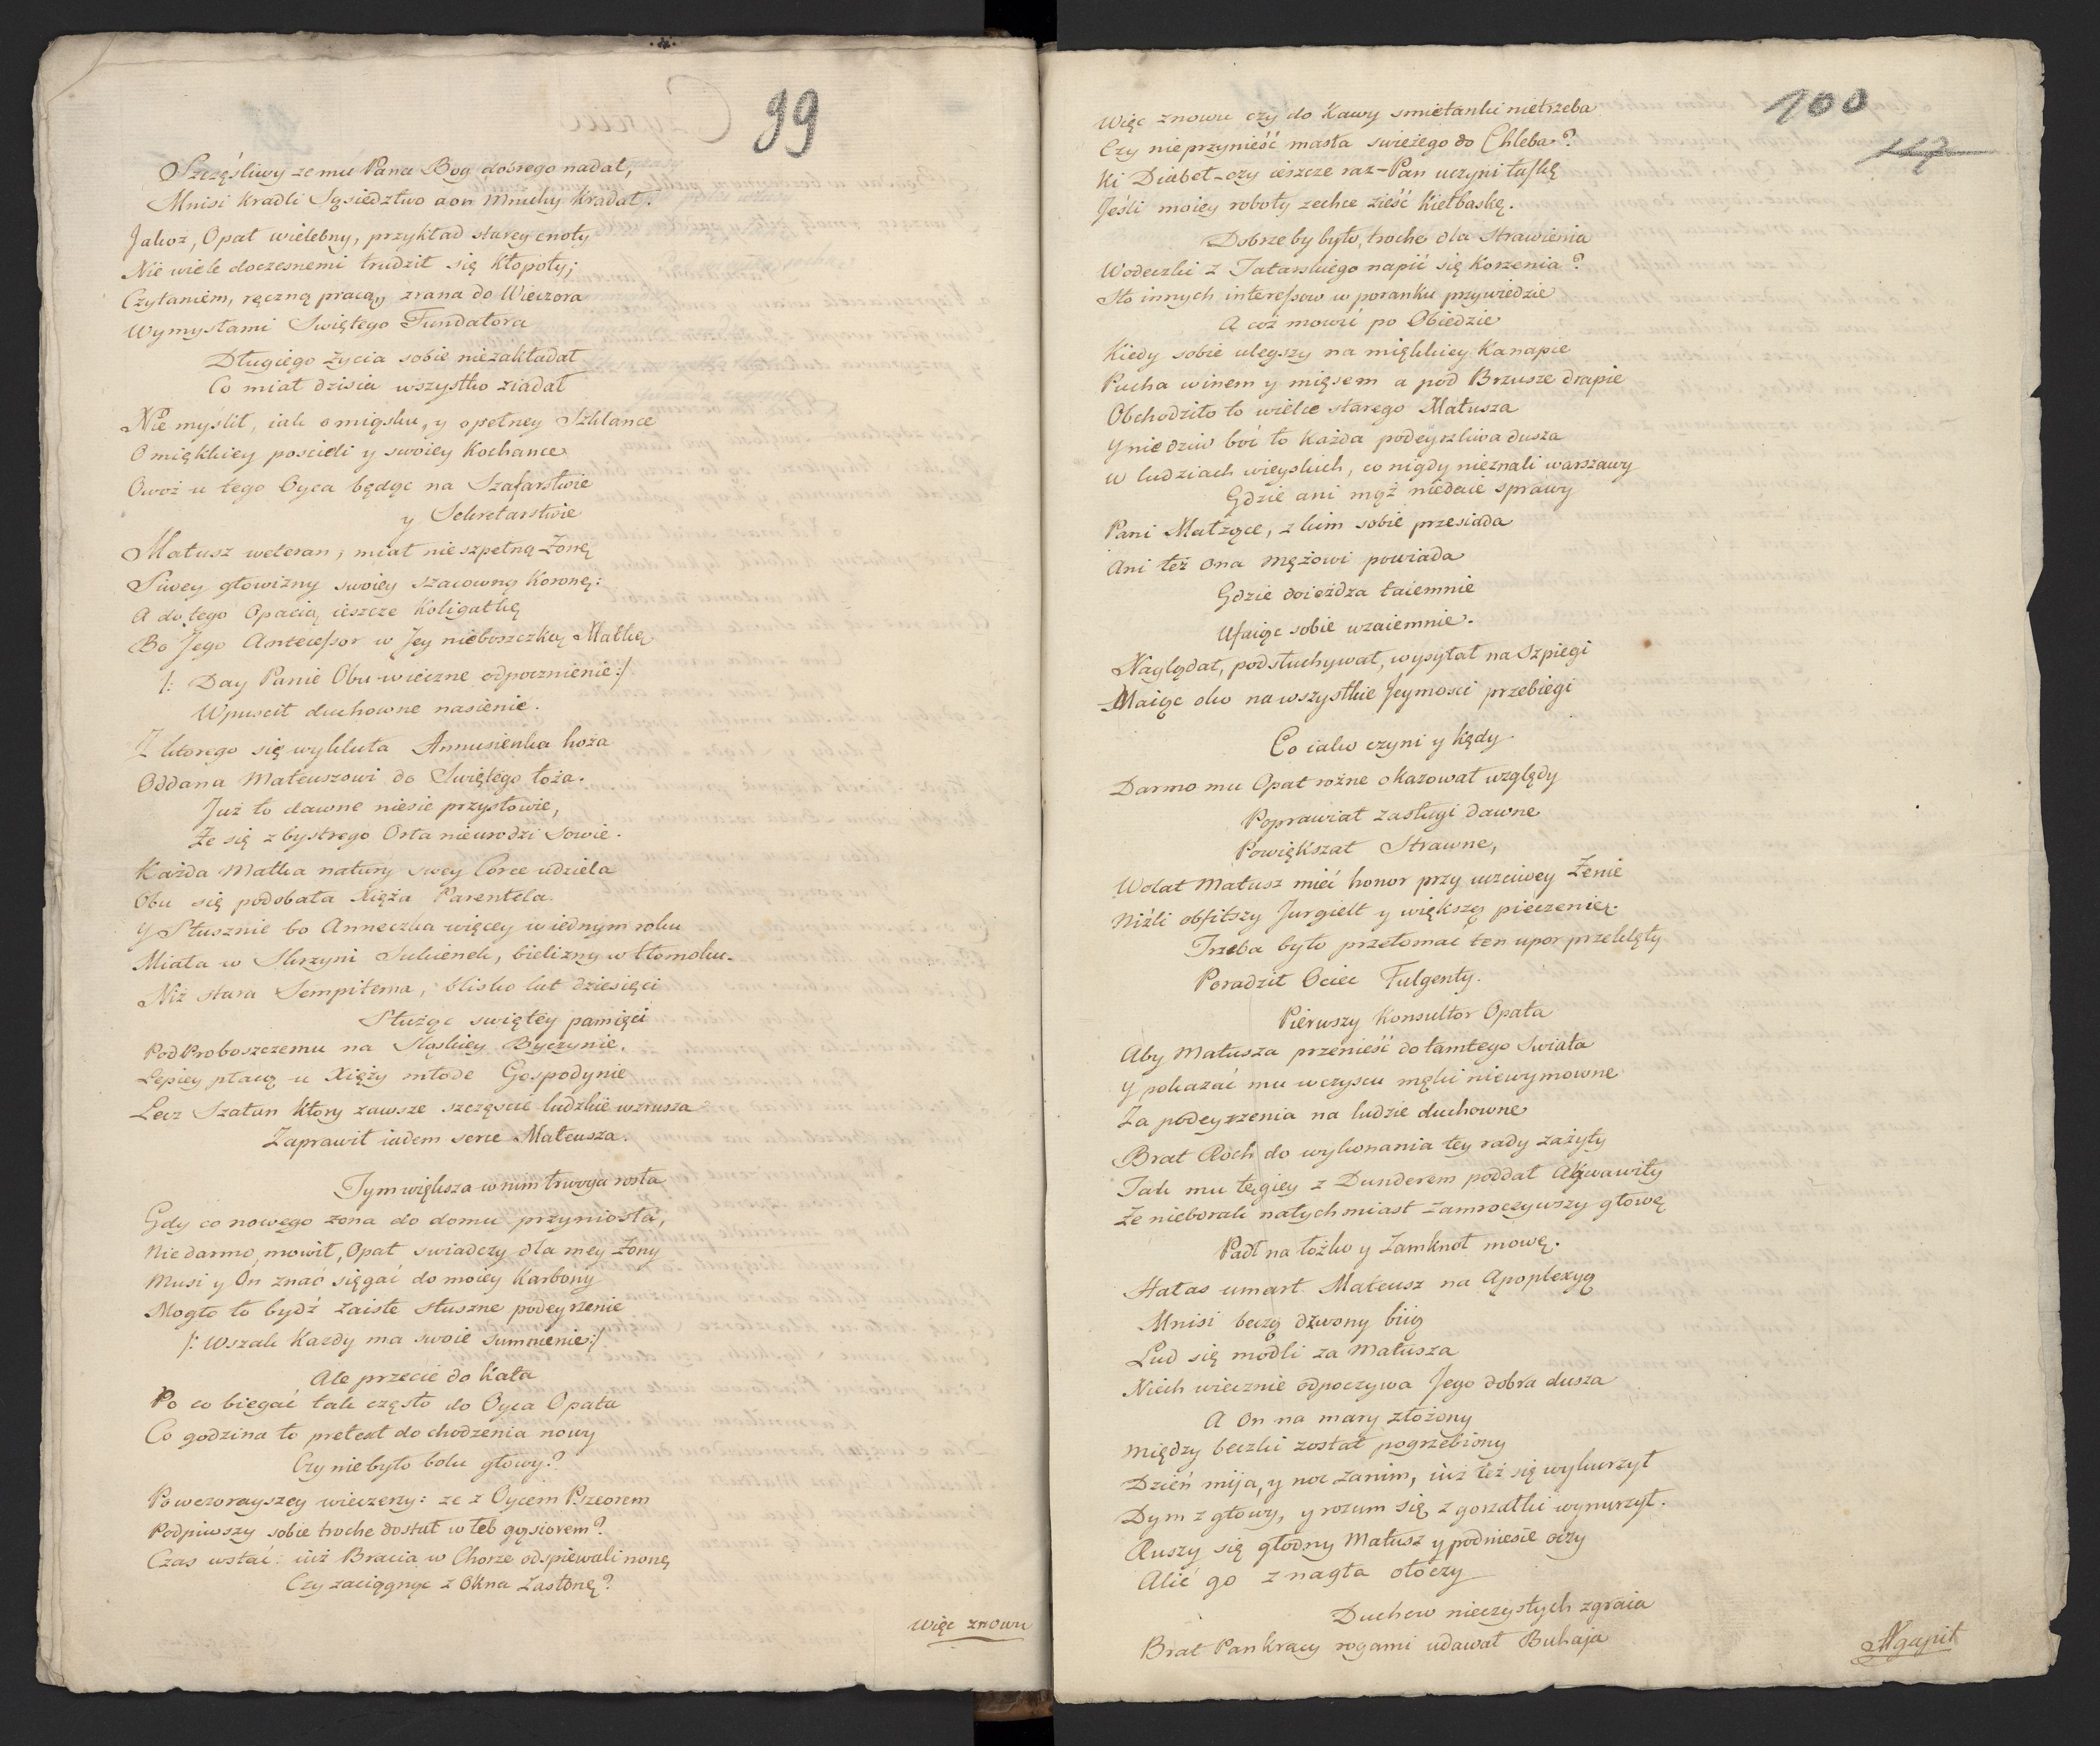 99
Szczęsliwy ze mu Pana Bog dobrego nadał,
Mnisi kradli Sąsiedztwo a on Mnichy kradał.
Jakoz, Opat wielebny, przykład starey cnoty
Nie wiele doczesnemi trudził się kłopoty;
Czytaniem, ręczną pracą, zrana do Wieczora
Wymysłami Swiętego Fundatora
Długiego życia sobie niezakładał
Co miał dzisia wszystko ziadał
Nie myslił, iak o mięsku, y o pełney Szklance
O miękkiey poscieli y swoiey Kochance
Owoż u tego Oyca będąc na Szafarstwie
y Sekretarstwie
Matusz weteran, miał nie szpetną Zonę
Siwey głowizny swoiey szacowną Koronę:
A do tego Opacią ieszcze Koligatkę
Bo Jego Antecessor w Jey nieboszczkę Matkę
/: Day Panie Obu wieczne odpocznienie:/
Wpuscił duchowne nasienie.
Z ktorego się wykluła Annusienka hoża
Oddana Mateuszowi do Swiętego łoża.
Już to dawne niesie przysłowie,
Że się z bystrego Orła nieurodzi Sowie.
Każda Matka natury swey Corce udziela
Obu się podobała Xięża Parentela.
Y Słusznie bo Anneczka więcey w iednym roku
Miała w Skrzyni Sukienek, bielizny w tłomoku.
Niż stara Sempiterna, blisko lat dziesięci
Służąc swiętey pamięci
Podproboszczemu na Sląskiey Byczynie.
Lepiey płacą u Xięży młode Gospodynie
Lecz Szatan który zawsze szczęscie ludzkie wzrusza
Zaprawił iadem serce Mateusza.
Tym większa w nim trwoga rosła
Gdy co nowego zona do domu przyniosła,
Nie darmo, mowił, Opat swiadczy dla mey Żony
Musi y On znać sięgać do moiey Karbony
Mogło to bydź zaiste słuszne podeyrzenie
/: Wszak Kazdy ma swoie summienie:/
Ale przecie do Kata
Po co biegać tak często do Oyca Opata
Co godzina to pretext do chodzenia nowy
Czy nie było bolu głowy?
Po wczorayszey wieczerzy: ze z Oycem Przeorem
Podpiwszy sobie troche dostał w łeb gąsiorem?
Czas wstać: iuż Bracia w Chorze odspiewali nonę
Czy zaciągnąc z Okna Zasłonę?
Więc znowu
100
117
Więc znowu czy do Kawy smietanki nietrzeba
Czy nieprzynieść masła swieżego do Chleba?
Ki Diabeł-czy ieszcze raz-Pan uczyni łaskę
Jeśli moiey roboty zechce zieść kiełbaskę.
Dobrze by było, troche dla Strawienia
Wodeczki z Tatarskiego napić się Korzenia?
Sto innych interessow w poranku przywiedzie
A coż mowić po Obiedzie
Kiedy sobie ulegszy na miękkiey Kanapie
Pucha winem y mięsem a pod Brzusze drapie
Obchodziło to wielce starego Matusza
Y nie dziw boć to każda podeyrzliwa dusza
W ludziach wieyskich, co nigdy nieznali warszawy
Gdzie ani mąż niedaie sprawy
Pani Małżące, z kim sobie przesiada
Ani też Ona Mężowi powiada
Gdzie doieżdza taiemnie
Ufaiąc sobie wzaiemnie.
Naglądał, podsłuchywał, wysyłał na Szpiegi
Maiąc oko na wszystkie Jeymosci przebiegi
Co iako czyni y kędy.
Darmo mu Opat rożne okazował względy
Poprawiał zasługi dawne
Powiększał Strawne,
Wolał Matusz mieć honor przy uczciwey Żenie
Niźli obfitszy Jurgielt y większą pieczenię.
Trzeba było przełomać ten upor przeklęty
Poradził Ociec Fulgenty.
Pierwszy Konsultor Opata
Aby Matusza przenieść do tamtego Swiata
Y pokazać mu w czyscu męki niewymowne
Za podeyrzenia na ludzie duchowne
Brat Roch do wykonania tey rady zażyty
Tak mu tęgiey z Dunderem poddał Akwawity
Że nieborak natychmiast zamroczywszy głowę
Padł na łóżko y Zamknoł mowę.
Hałas umarł Mateusz na Apoplexyą
Mnisi beczą dzwony biią
Lud się modli za Matusza
Niech wiecznie odpoczywa Jego dobra dusza
A On na mary złożony
Między beczki został pogrzebiony
Dzień mija, y noc zanim, iuż też się wykurzył
Dym z głowy, y rozum się z gorzałki wynurzył.
Ruszy się głodny Matusz y podniesie oczy
Alić go znagła otoczy
Duchow nieczystych zgraia
Brat Pankracy rogami udawał Buhaja
Agapit